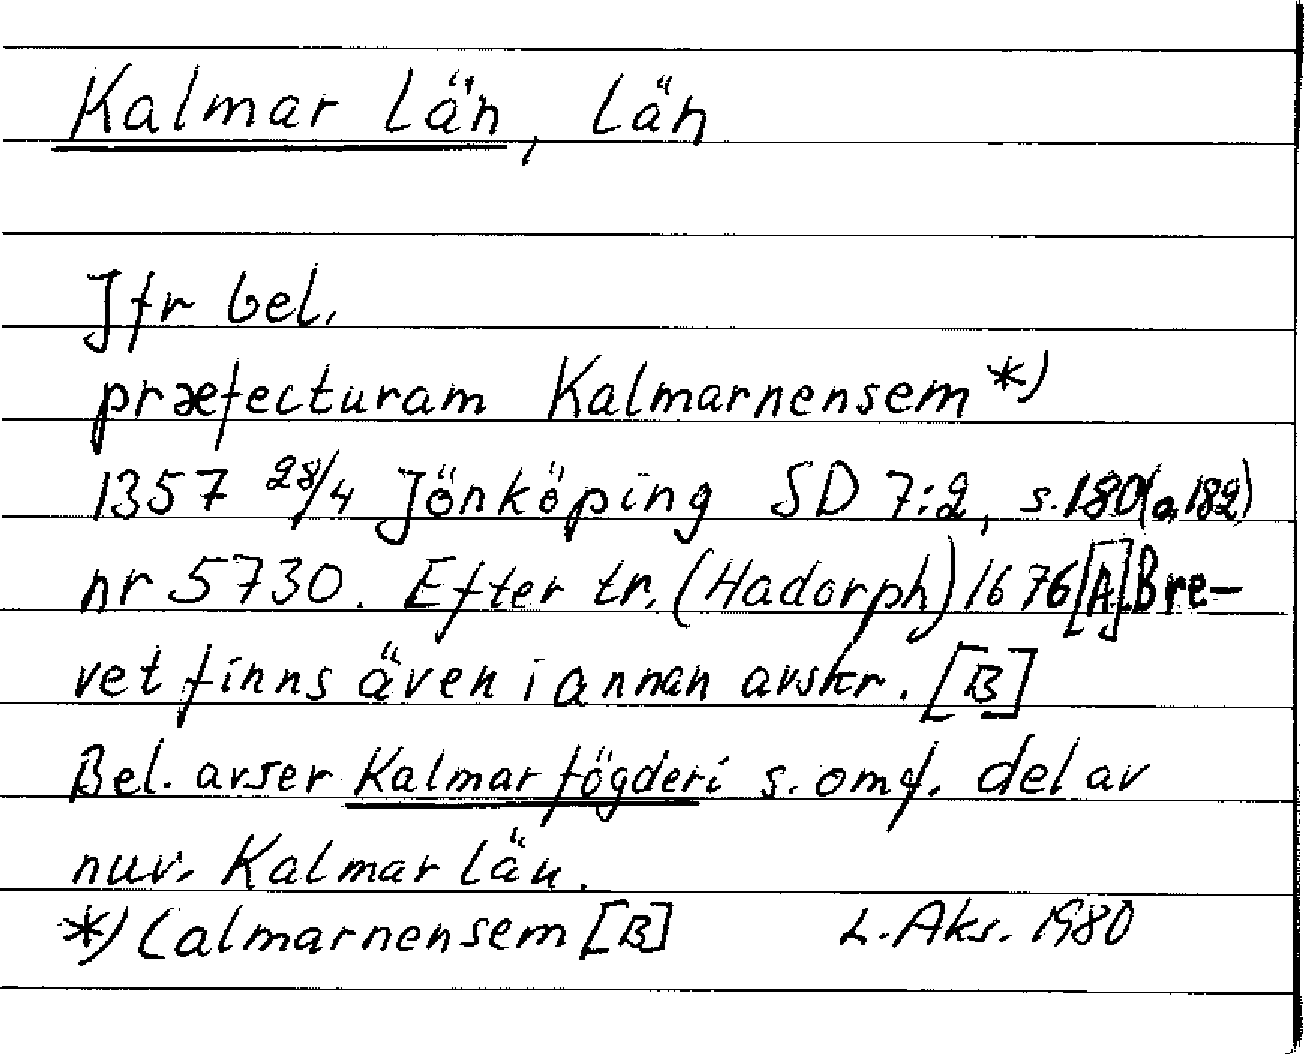 Kalmar Län, Län
Jfr bel.
præfecturam Kalmarnensem *)
1357 28/4 Jönköping SD 7:2, s. 180 (o. 182)
nr 5730. Efter tr. (Hadorph) 1676 [A]. Bre-
vet finns även i annan avskr. [B]
Bel. avser Kalmar fögderi s. omf. del av
nuv. Kalmar län.
*) Calmarnensem [B] L. Aks. 1980